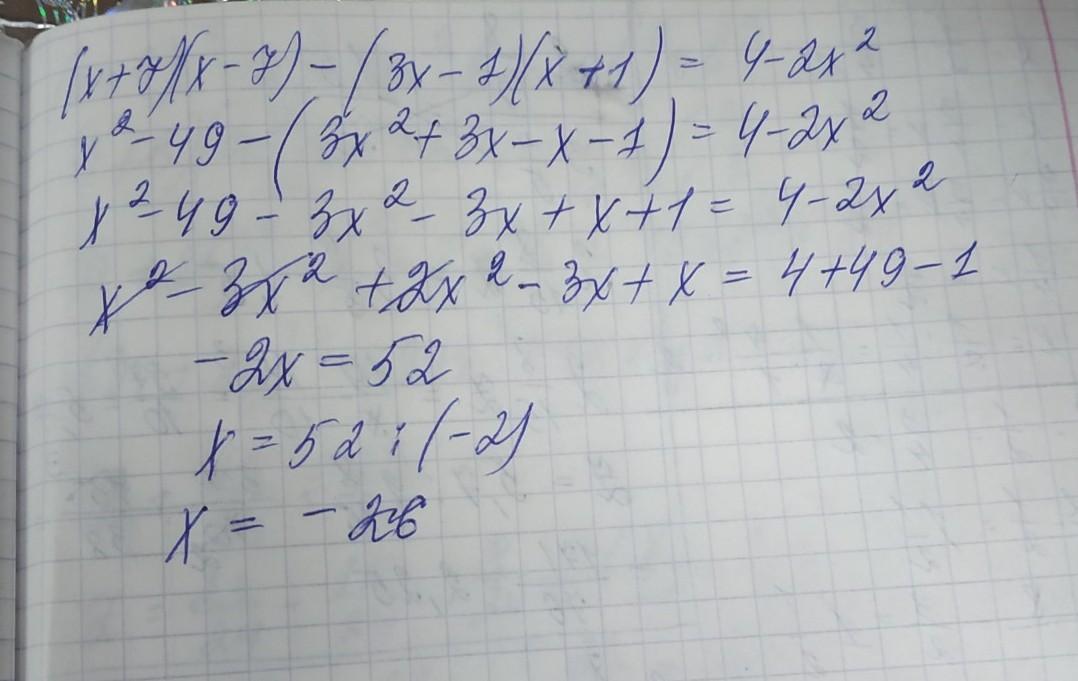 (x+7)(x-7)-(3x-1)(x+1)=4-2x²
x²-49-(3x²+3x-x-1)=4-2x²
x²-49-3x²-3x+x+1=4-2x²
x²-3x²+2x²-3x+x=4+49-1
-2x=52
x=52:(-2)
x=-26